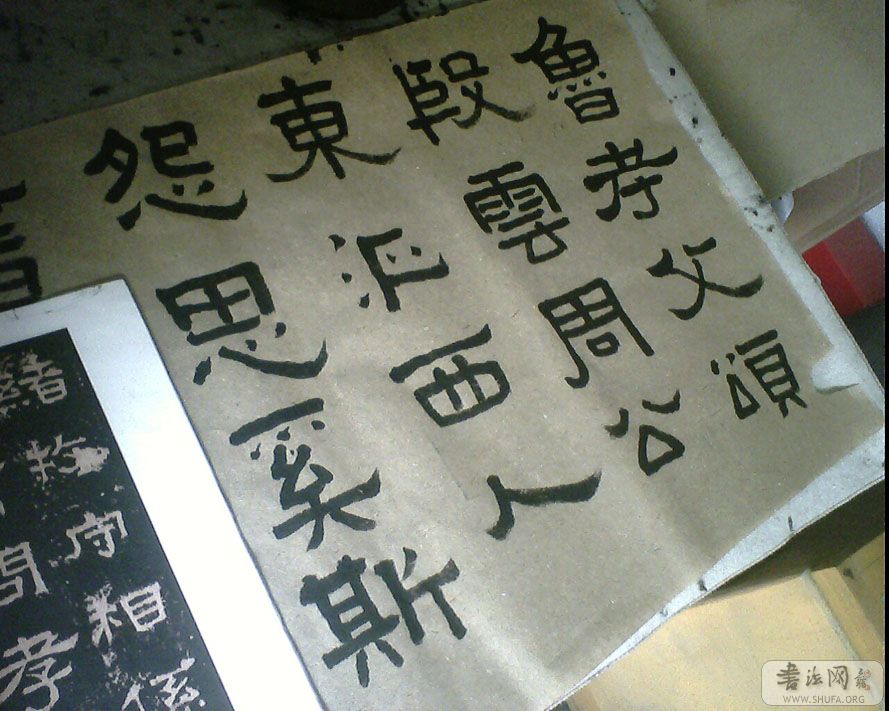 魯考父頌
殷雲周公
東征西人
怨思奚斯
緒牧守相係
問孝
書法网
WWW.SHUFA.ORG